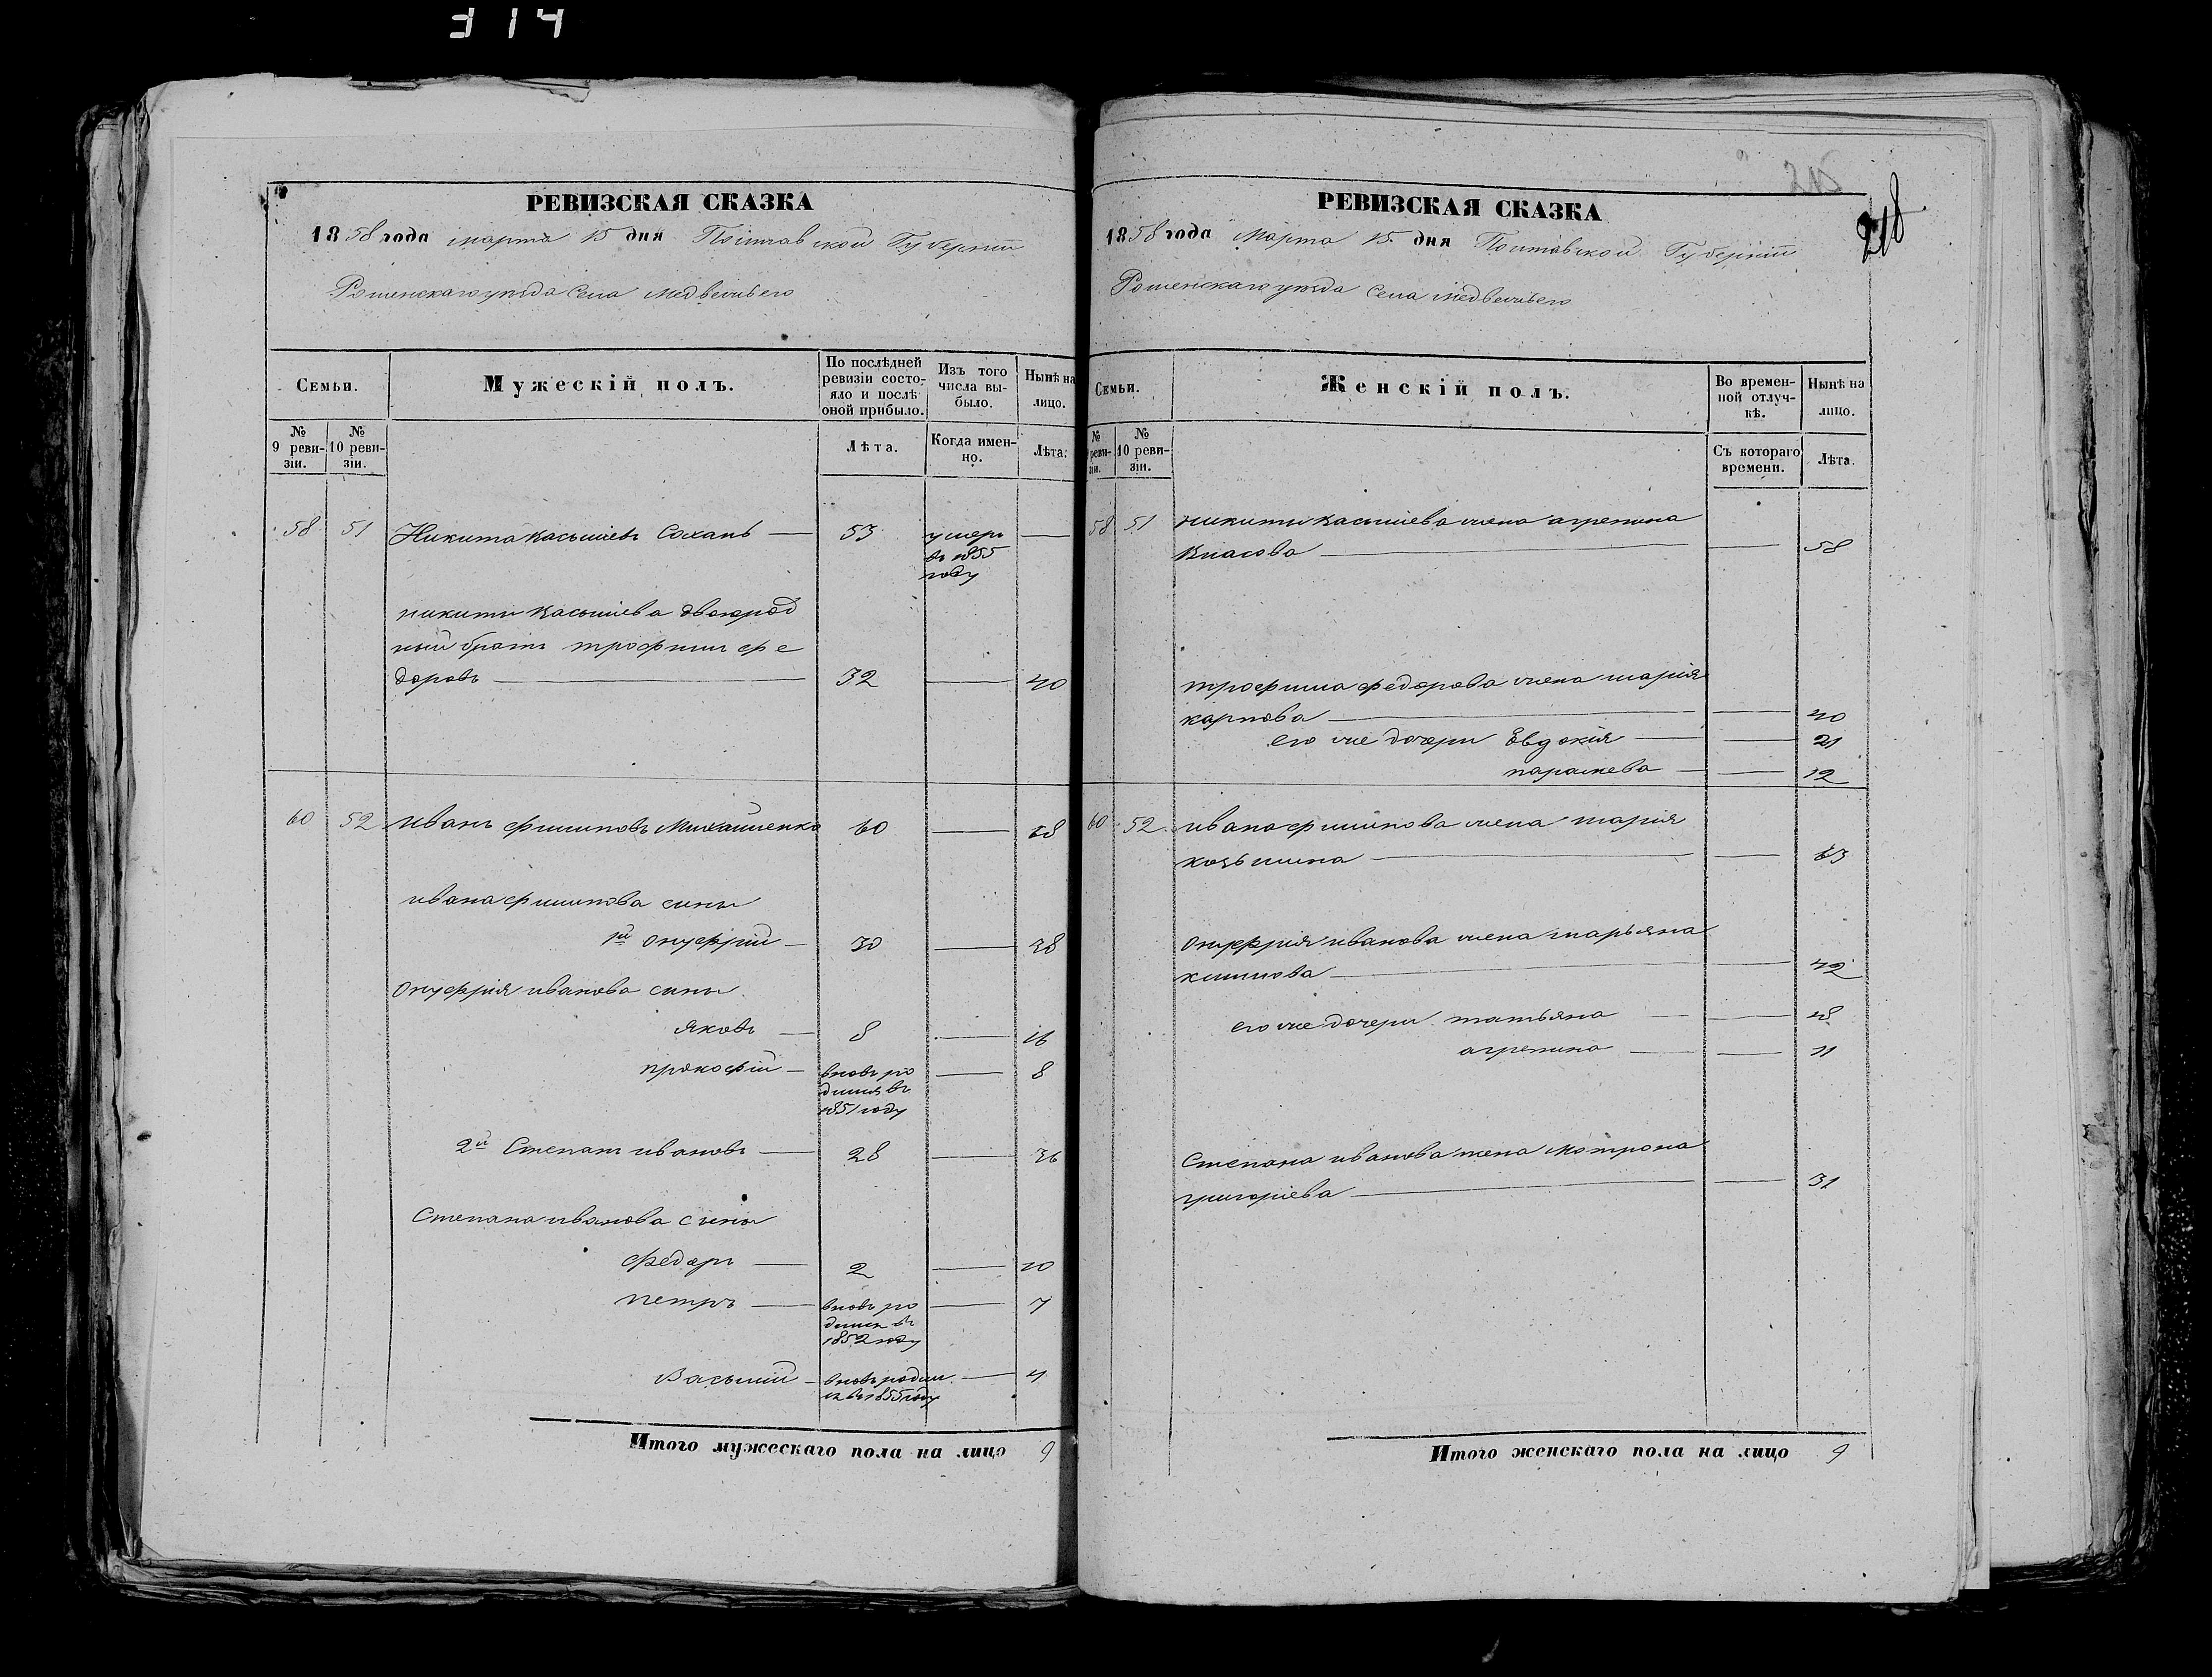 314
РЕВИЗСКАЯ СКАЗКА
1858 года марта 15 дня Полтавской Губерніи
Роменскаго уѣзда Села Медвежьего
Семьи.
Мужескій полъ.
По послѣдней ревизіи состояло и послѣ оной прибыло.
Изъ того числа выбыло.
Нынѣ на лицо.
№ 9 ревизіи.
№ 10 ревизіи.
Лѣта.
Когда именно.
Лѣта.
58 51 Никита Касьяневъ Сохань — 53 умеръ в 1855 году —
никиты Касьянева двоюрод
ный братъ трофимъ фе
доровъ — 32 — 40
60 52 иванъ филиповъ Михайленко 60 — 68
ивана филипова сыны
1й онуфрій — 30 — 38
Онуфрія иванова сыны
яковъ — 8 — 16
прокофій — вновь родился въ 1851 году — 8
2й Степанъ ивановъ — 28 — 36
Степана иванова сыны
Федоръ — 2 — 10
петръ — вновь родился въ 1852 году — 7
Василій — вновь родился въ 1855 году — 4
Итого мужескаго пола на лицо 9
218
РЕВИЗСКАЯ СКАЗКА
1858 года Марта 15 дня Полтавской Губерніи
Роменскаго уѣзда Села Медвежьего
Семьи.
Женскій полъ.
Во временной отлучкѣ.
Нынѣ на лицо.
№ 9 ревизіи.
№ 10 ревизіи.
Съ котораго времени.
Лѣта.
58 51 никиты Касьянева жена агрепина
Власова — — 58
трофима федорова жена марія
карпова — — 40
его же дочери Евдокія — — 21
параскева — — 12
60 52 ивана филипова жена марія
козьмина — — 63
Онуфрія иванова жена марьяна
климова — — 42
его же дочери татьяна — — 18
агрепина — — 11
Степана иванова жена Мотрона
григоріева — — 31
Итого женскаго пола на лицо 9